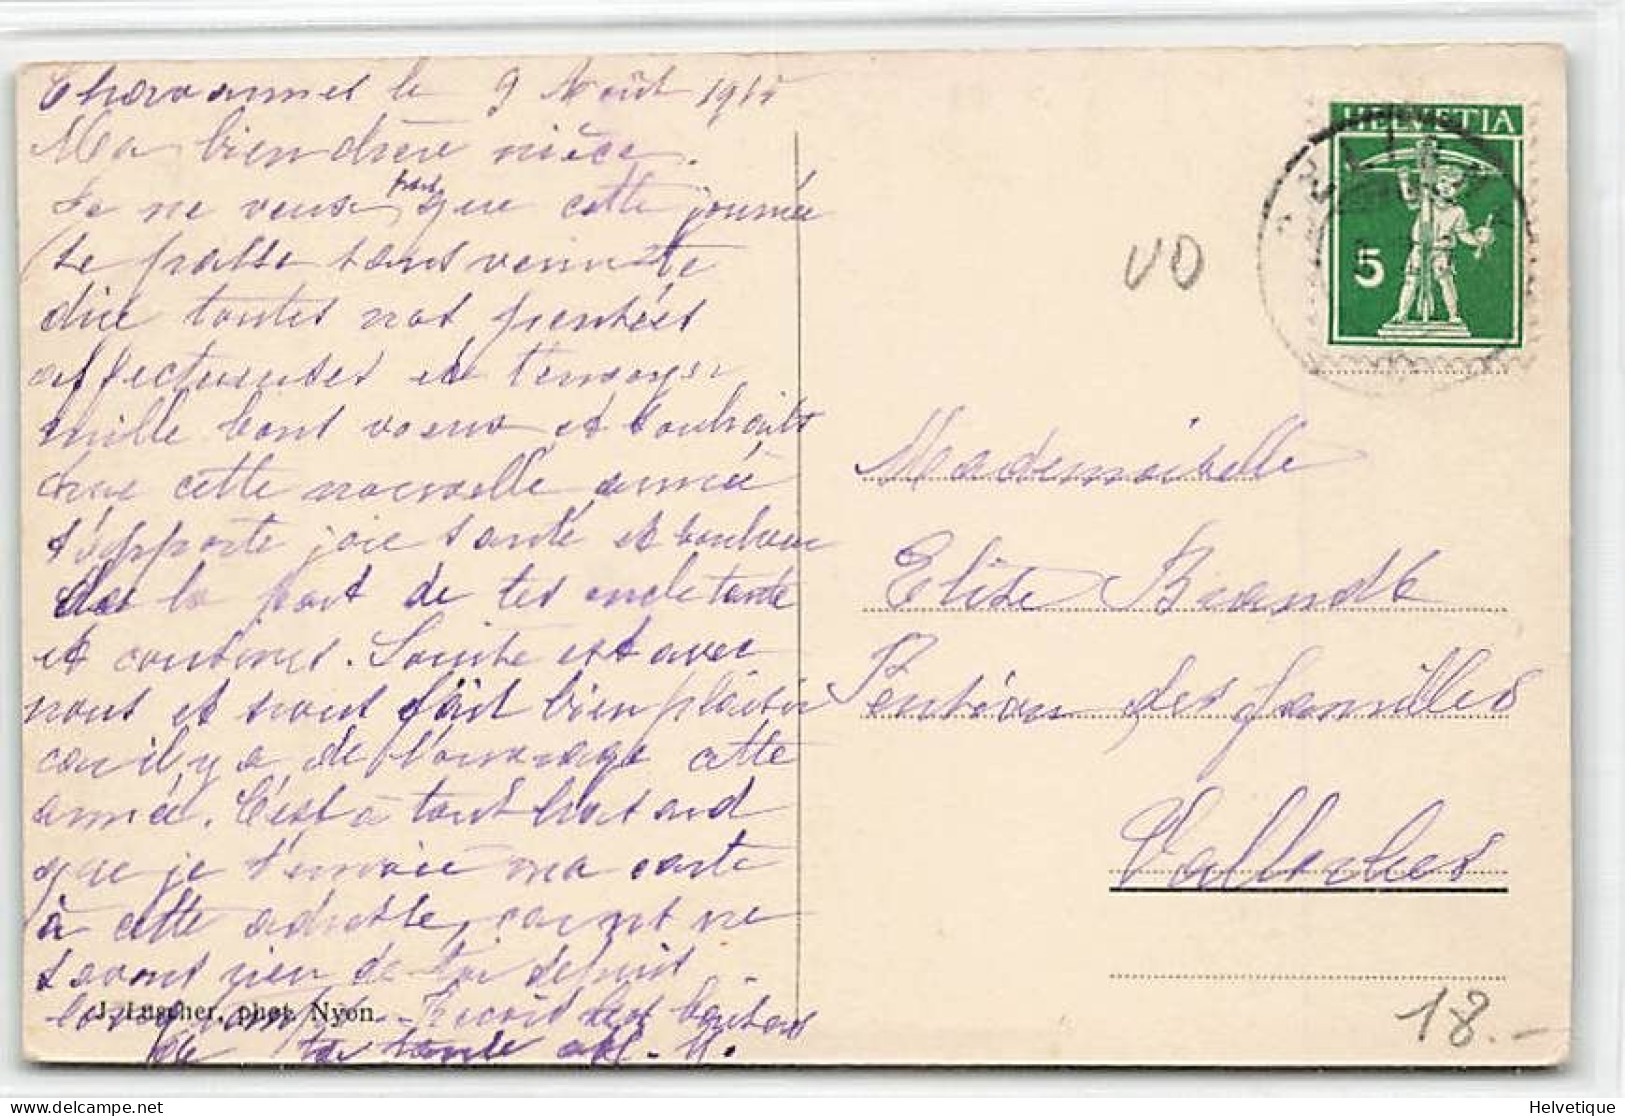 Chavannes le 9 Août 191
Ma bien chère nièce.
Je ne veux pas que cette journée
se passe sans venir te
dire toutes nos pensées
affectueuses et t'envoyer
mille bons voeux et souhaits
que cette nouvelle année
t'apporte joie santé et bonheur
de la part de tes oncle tante
et cousines. est avec
nous et nous fait bien plaisir
car il y a de l'ouvrage cette
année. C'est à tout hasard
que je t'envoie ma carte
à cette adresse, car nous ne
savons rien de toi depuis
longtemps. Reçois les baisers
de ta tante
J. Luscher, phot. Nyon.
HELVETIA
5
VD
Mademoiselle
Elise Brandt
Pension des familles
Vallorbes
18.-
Helvetique